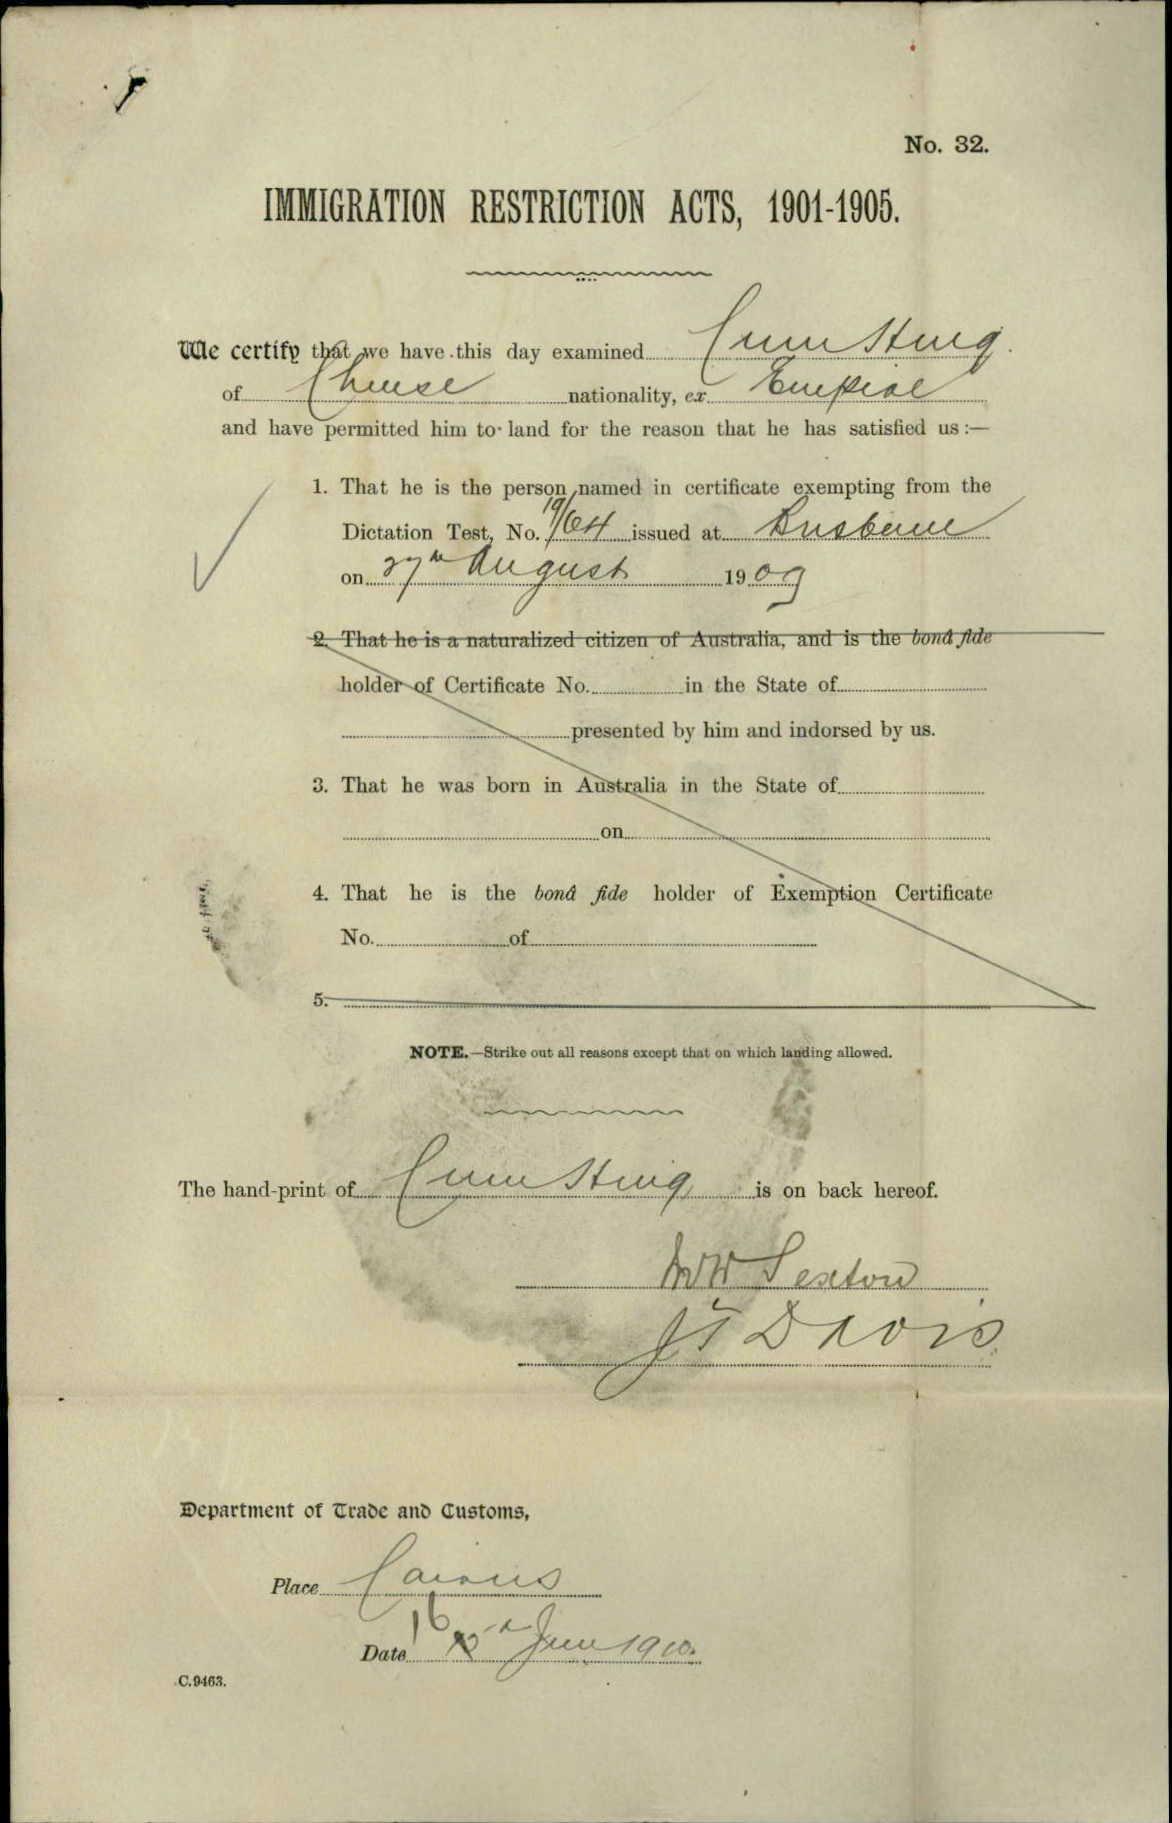 No. 32.
IMMIGRATION RESTRICTION ACTS, 1901-1905.
We certify that we have this day examined Cum Hing
of Chinese nationality, ex Empire
and have permitted him to land for the reason that he has satisfied us :—
1. That he is the person named in certificate exempting from the
Dictation Test, No. 19/64 issued at Brisbane
on 27th August 1909
2. That he is a naturalized citizen of Australia, and is the bonâ fide
holder of Certificate No. in the State of
presented by him and indorsed by us.
3. That he was born in Australia in the State of
on
4. That he is the bonâ fide holder of Exemption Certificate
No. of
5.
NOTE.—Strike out all reasons except that on which landing allowed.
The hand-print of Cum Hing is on back hereof.
Sexton
J T Davis
Department of Trade and Customs,
Place Cairns
Date 16 June 1910.
C.9463.